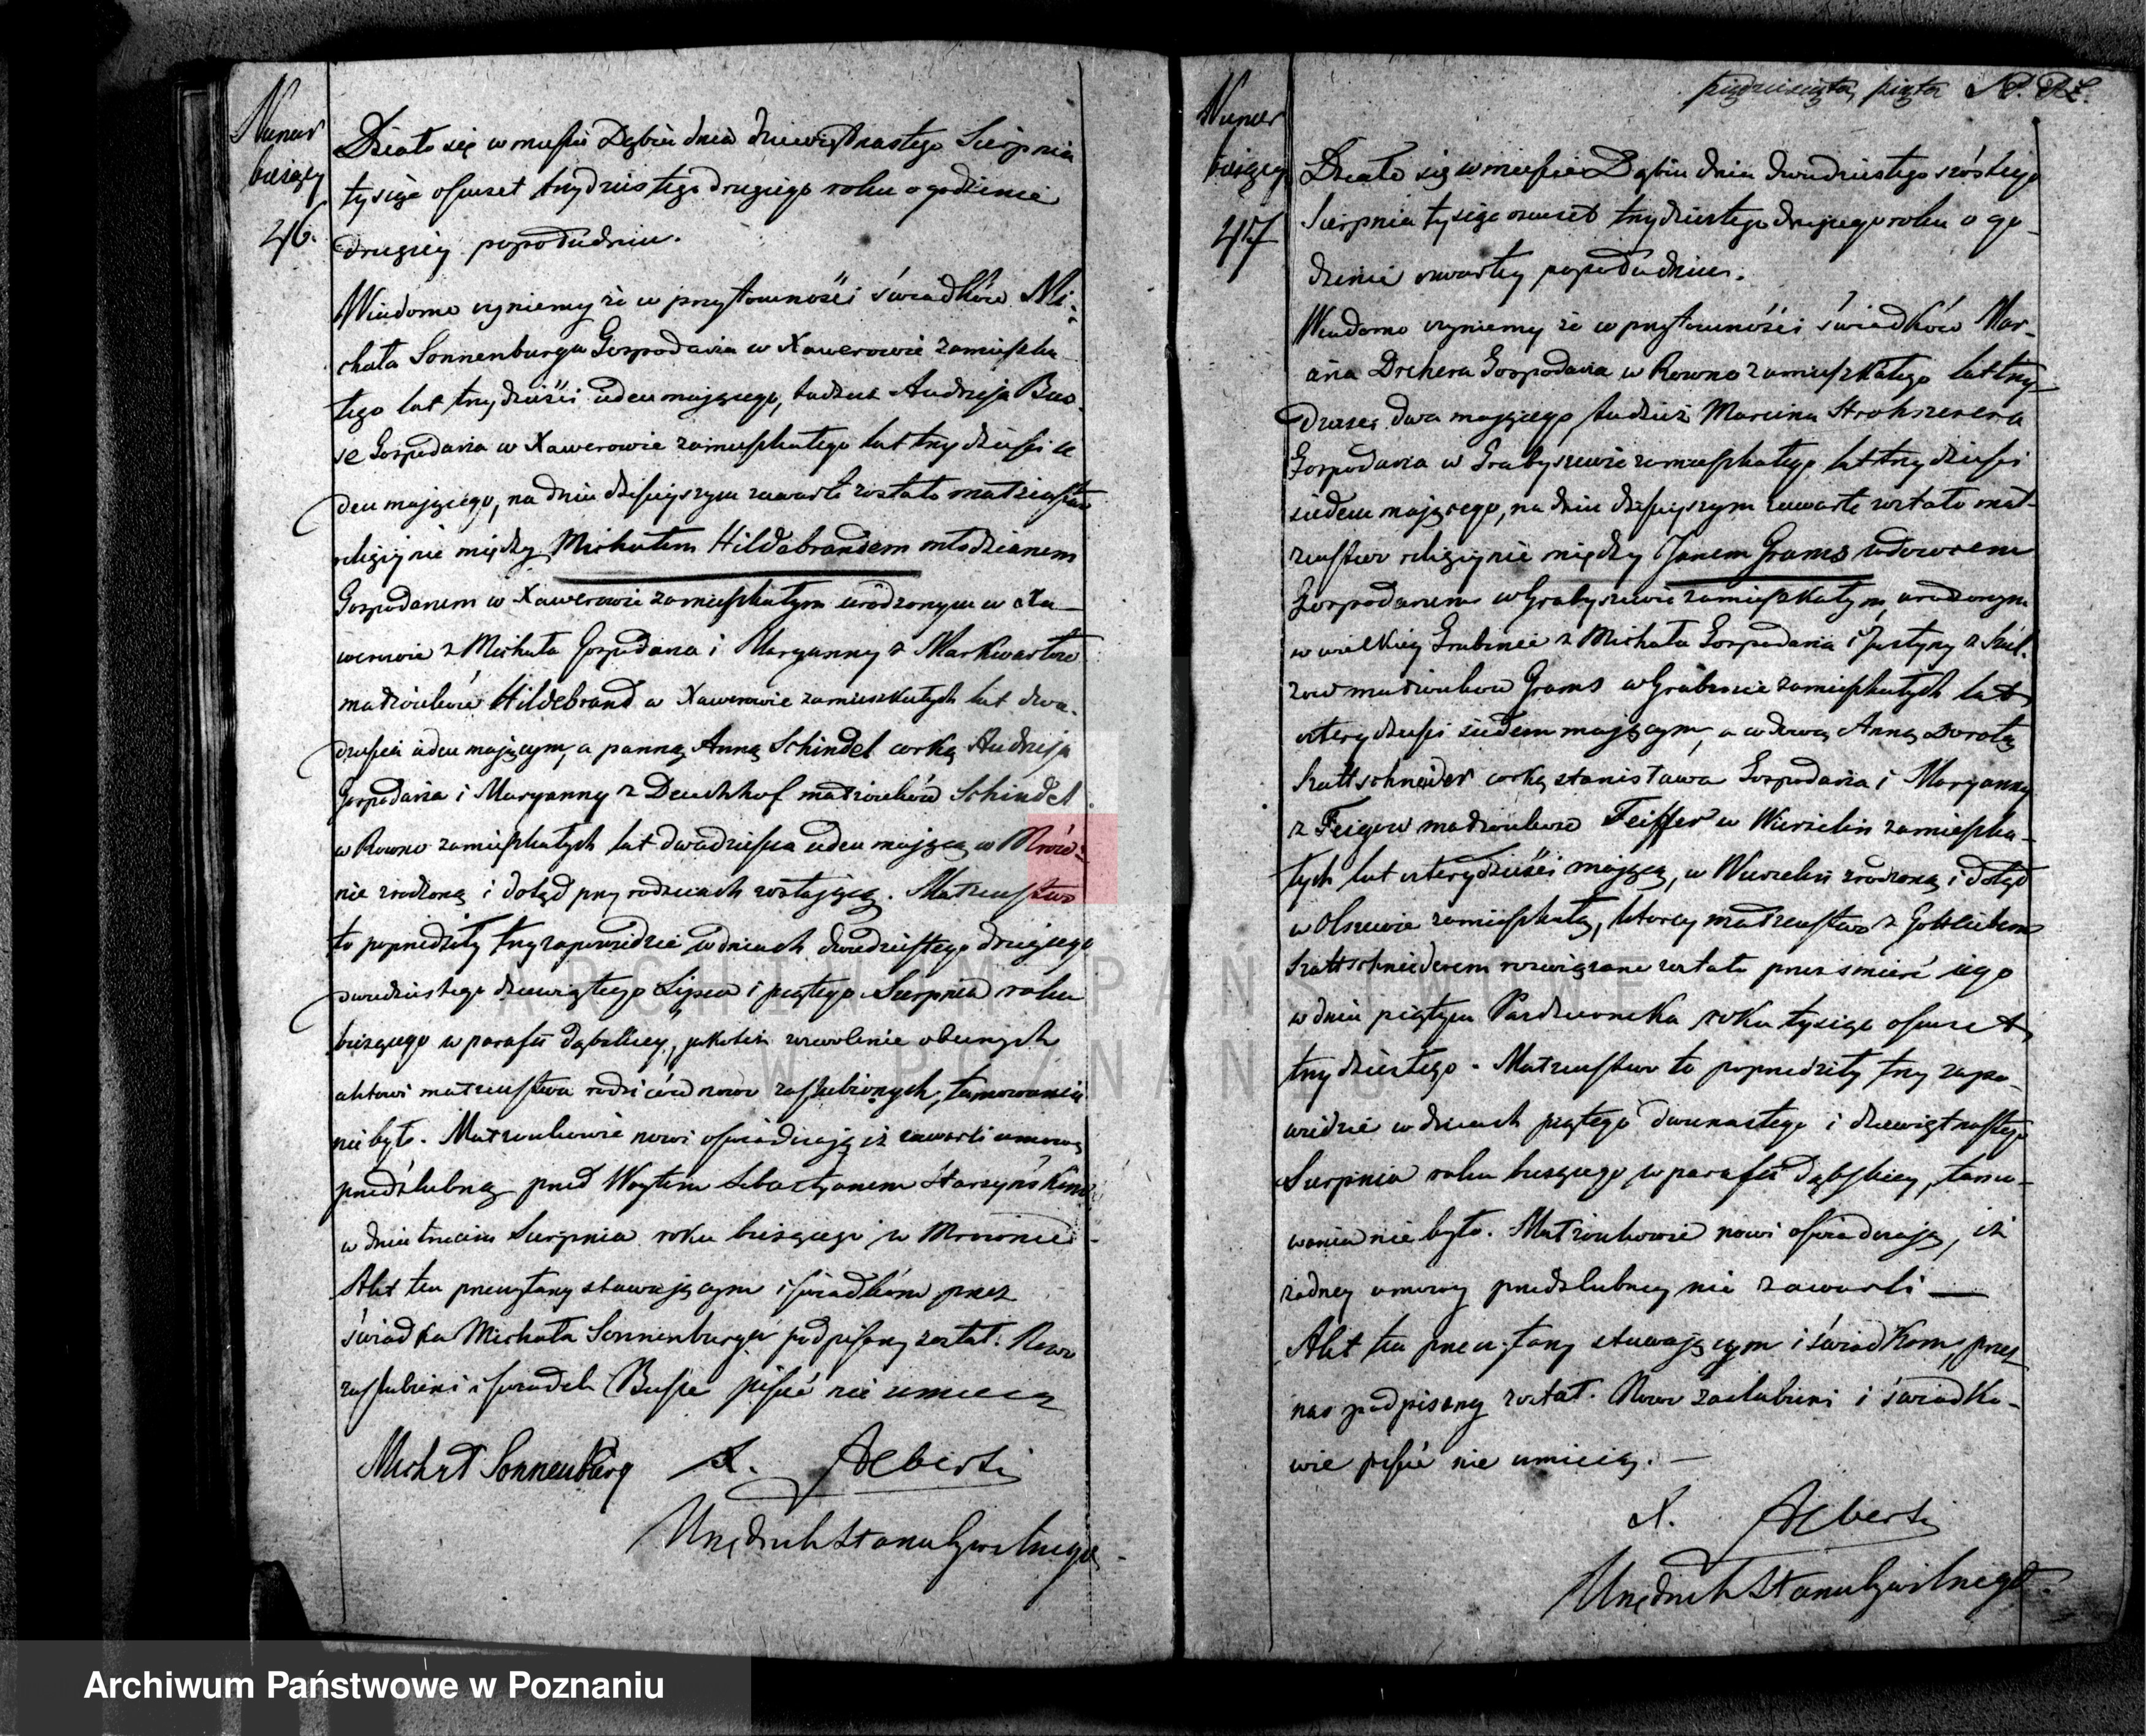 Numer
bieżący
46.
Działo się w mieście Dąbiu dnia dziewiętnastego Sierpnia
tysiąc ośmset trzydziestego drugiego roku o godzinie
drugiey popołudniu.
Wiadomo czyniemy że w przytomności świadków Mi-
chała Sonnenburga Gospodarza w Xawerowie zamieszka
łego lat trzydzieści siedem mającego, tudzież Andrzeja Bus-
se Gospodarza w Xawerowie zamieszkałego lat trzydzieści sie
dem mającego, na dniu dzisieyszym zawarte zostało małżeństwo
religijnie między Michałem Hildebrandem młodzianem
Gospodarzem w Xawerowie zamieszkałym urodzonym w Xa-
werowie z Michała Gospodarza i Maryanny z Markwartow
małżonków Hildebrand w Xawerowie zamieszkałych lat dwa-
dzieścia siedem mającym, a panną Anną Schindel corką Andrzeja
Gospodarza i Maryanny z Deuchhof małżonków Schindel
w Rowno zamieszkałych lat dwadzieścia siedem mającą w Mrów-
nie zrodzoną i dotąd przy rodzicach zostającą. Małżeństwo
to poprzedziły trzy zapowiedzie w dniach dwudziestego drugiego
dwudziestego dziewiątego Lipca i piątego Sierpnia roku
bieżącego w parafii dąbskiey, jakoteż zezwolenie obecnych
aktowi małżeństwa rodziców nowo zaślubionych, tamowania
nie było. Małżonkowie nowi oświadczają iż zawarli umowę
przedślubną przed Woytem Sebastyanem Starzyńskim
w dniu trzecim Sierpnia roku bieżącego w Mrownie
Akt ten przeczytany stawającym i świadkom przez
świadka Michała Sonnenburga podpisany został. Nowo
zaślubieni i świadek Busse pisać nie umieią
Michał Sonnenburg X. Alberti
Urzędnik Stanu Cywilnego
piędziesiąta piąta
Numer
bieżący
47
Działo się w mieście Dąbiu dnia dwudziestego szóstego
Sierpnia tysiąc ośmset trzydziestego drugiego roku o go-
dzinie czwartey popołudniu.
Wiadomo czyniemy że w przytomności świadków Mar-
cina Drehera Gospodarza w Rowno zamieszkałego lat trzy
dzieści dwa mającego tudzież Marcina Strohszerera
Gospodarza w Grabyszewie zamieszkałego lat trzydzieści
siedem mającego, na dniu dzisieyszym zawarte zostało mał-
żeństwo religijnie między Janem Grams wdowcem
Gospodarzem w Grabyszewie zamieszkałym, urodzonym
w wielkiey Grabince z Michała Gospodarza i Justyny z Szul-
zow małżonków Grams w Grabince zamieszkałych lat
czterydzieści siedem mającym, a wdową Anną Dorotą
Kattschneider corką Stanisława Gospodarza i Maryanny
z Feigow małżonków Feiffer w Wierzelin zamieszka-
łych lat czterydzieści mającą, w Wierzelin zrodzoną i dotąd
w Olszewie zamieszkałą, ktorey małżeństwo z Gottliebem
Kattschneiderem rozwiązane zostało przez śmierć jego
w dniu piątym Pazdziernika roku tysiąc ośmset
trzydziestego. Małżeństwo to poprzedziły trzy zapo-
wiedzie w dniach piątego dwunastego i dziewiętnastego
Sierpnia roku bieżącego w parafii dąbskiey, tamo-
wania nie było. Małżonkowie nowi oświadczają, iż
żadney umowy przedślubney nie zawarli —
Akt ten przeczytany stawającym i świadkom, przez
nas podpisany został. Nowo zaślubieni i świadko-
wie pisać nie umieią. —
X. Alberti
Urzędnik Stanu Cywilnego.
ARCHIWUM PAŃSTWOWE
W POZNANIU
Archiwum Państwowe w Poznaniu